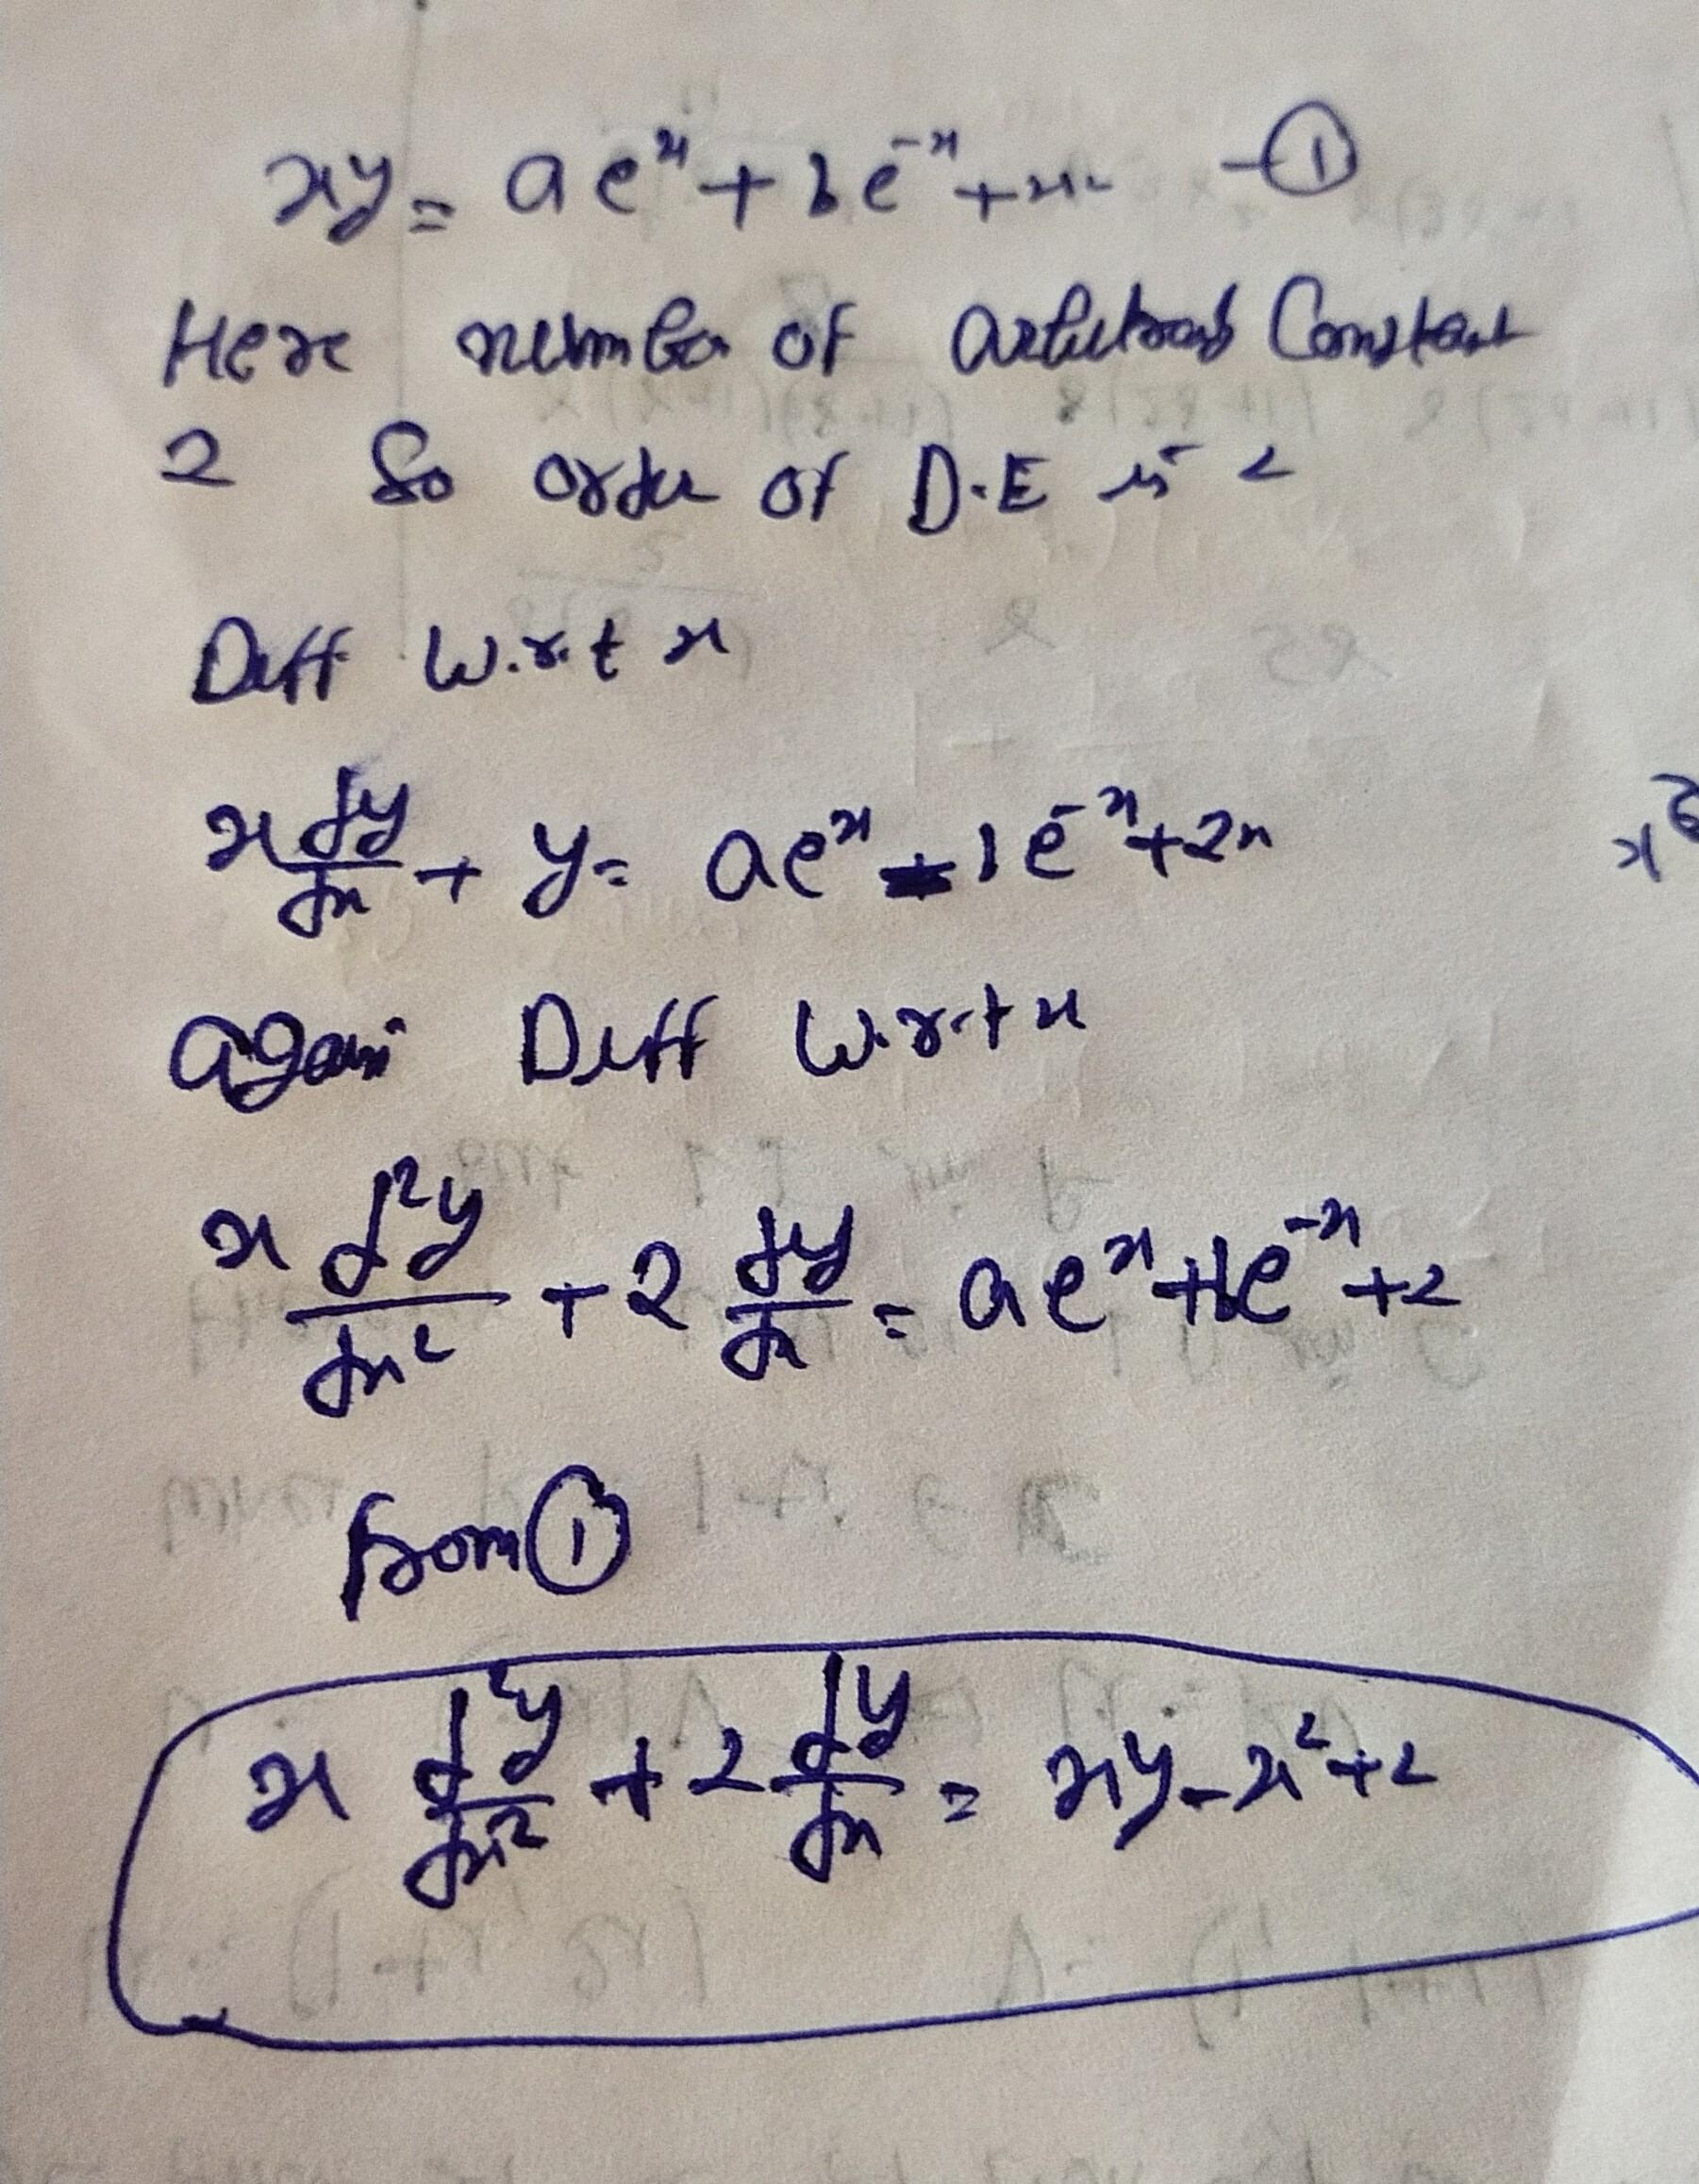 xy = ae^x + be^-x + x^2 - ①
Here number of arbitrary Constant
2 So order of D.E is 2
Diff W.r.t x
x dy/dx + y = ae^x - be^-x + 2x
again Diff W.r.t x
x d^2y/dx^2 + 2 dy/dx = ae^x + be^-x + 2
from ①
x d^2y/dx^2 + 2 dy/dx = xy - x^2 + 2